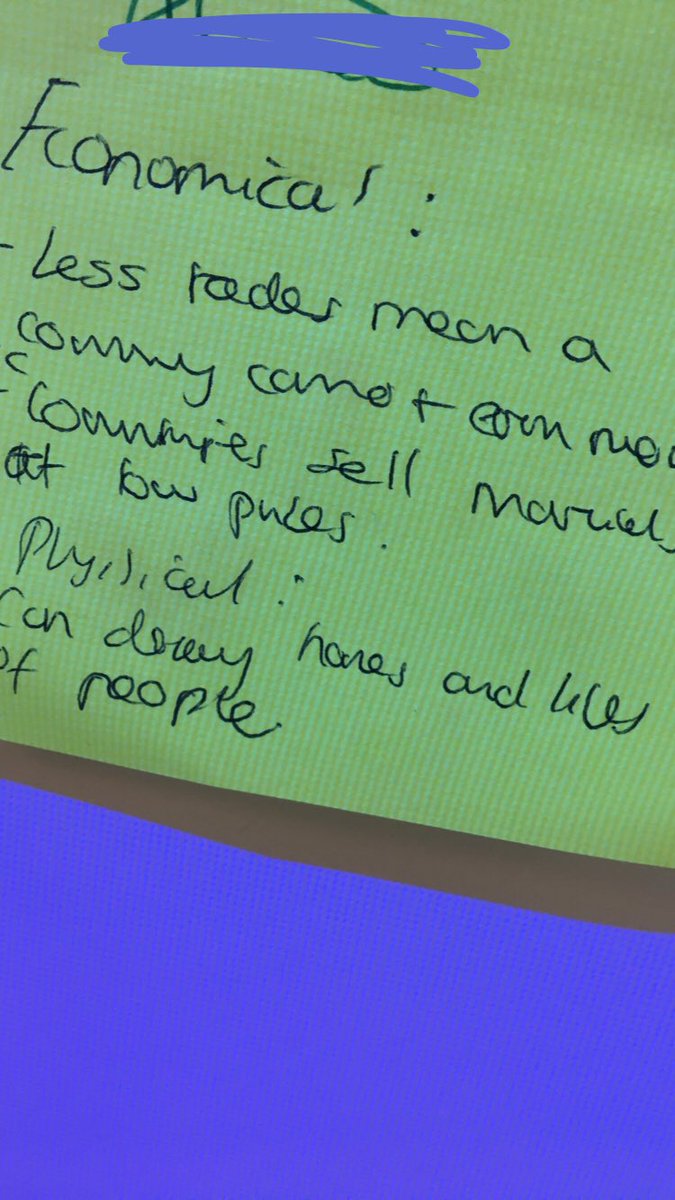 Economical :
- Less trades mean a
country cannot earn
- Countries sell materials
at low prices.
Physical :
can destroy homes and lives
of people